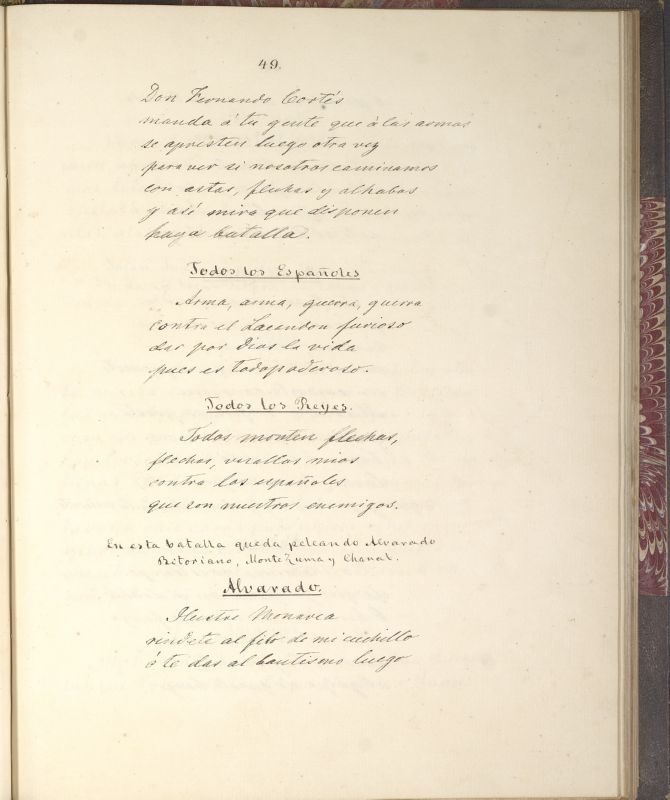 49.
Don Fernando Cortés
manda á tu gente que á las armas
se apresten luego otra vez
para ver si nosotros caminamos
con astas, flechas y alhabas
y así mira que disponen
haya batalla.
Todos los Españoles
Arma, arma, guerra, guerra
contra el Lacandon furioso
dar por Dios la vida
pues es todopoderoso.
Todos los Reyes.
Todos monten flechas,
flechas, vasallos mios
contra los españoles
que son nuestros enemigos.
En esta batalla queda peleando Alvarado
Bitoriano, Montezuma y Chanal.
Alvarado.
Ilustre Monarca
rindete al filo de mi cuchillo
ó te das al bautismo luego